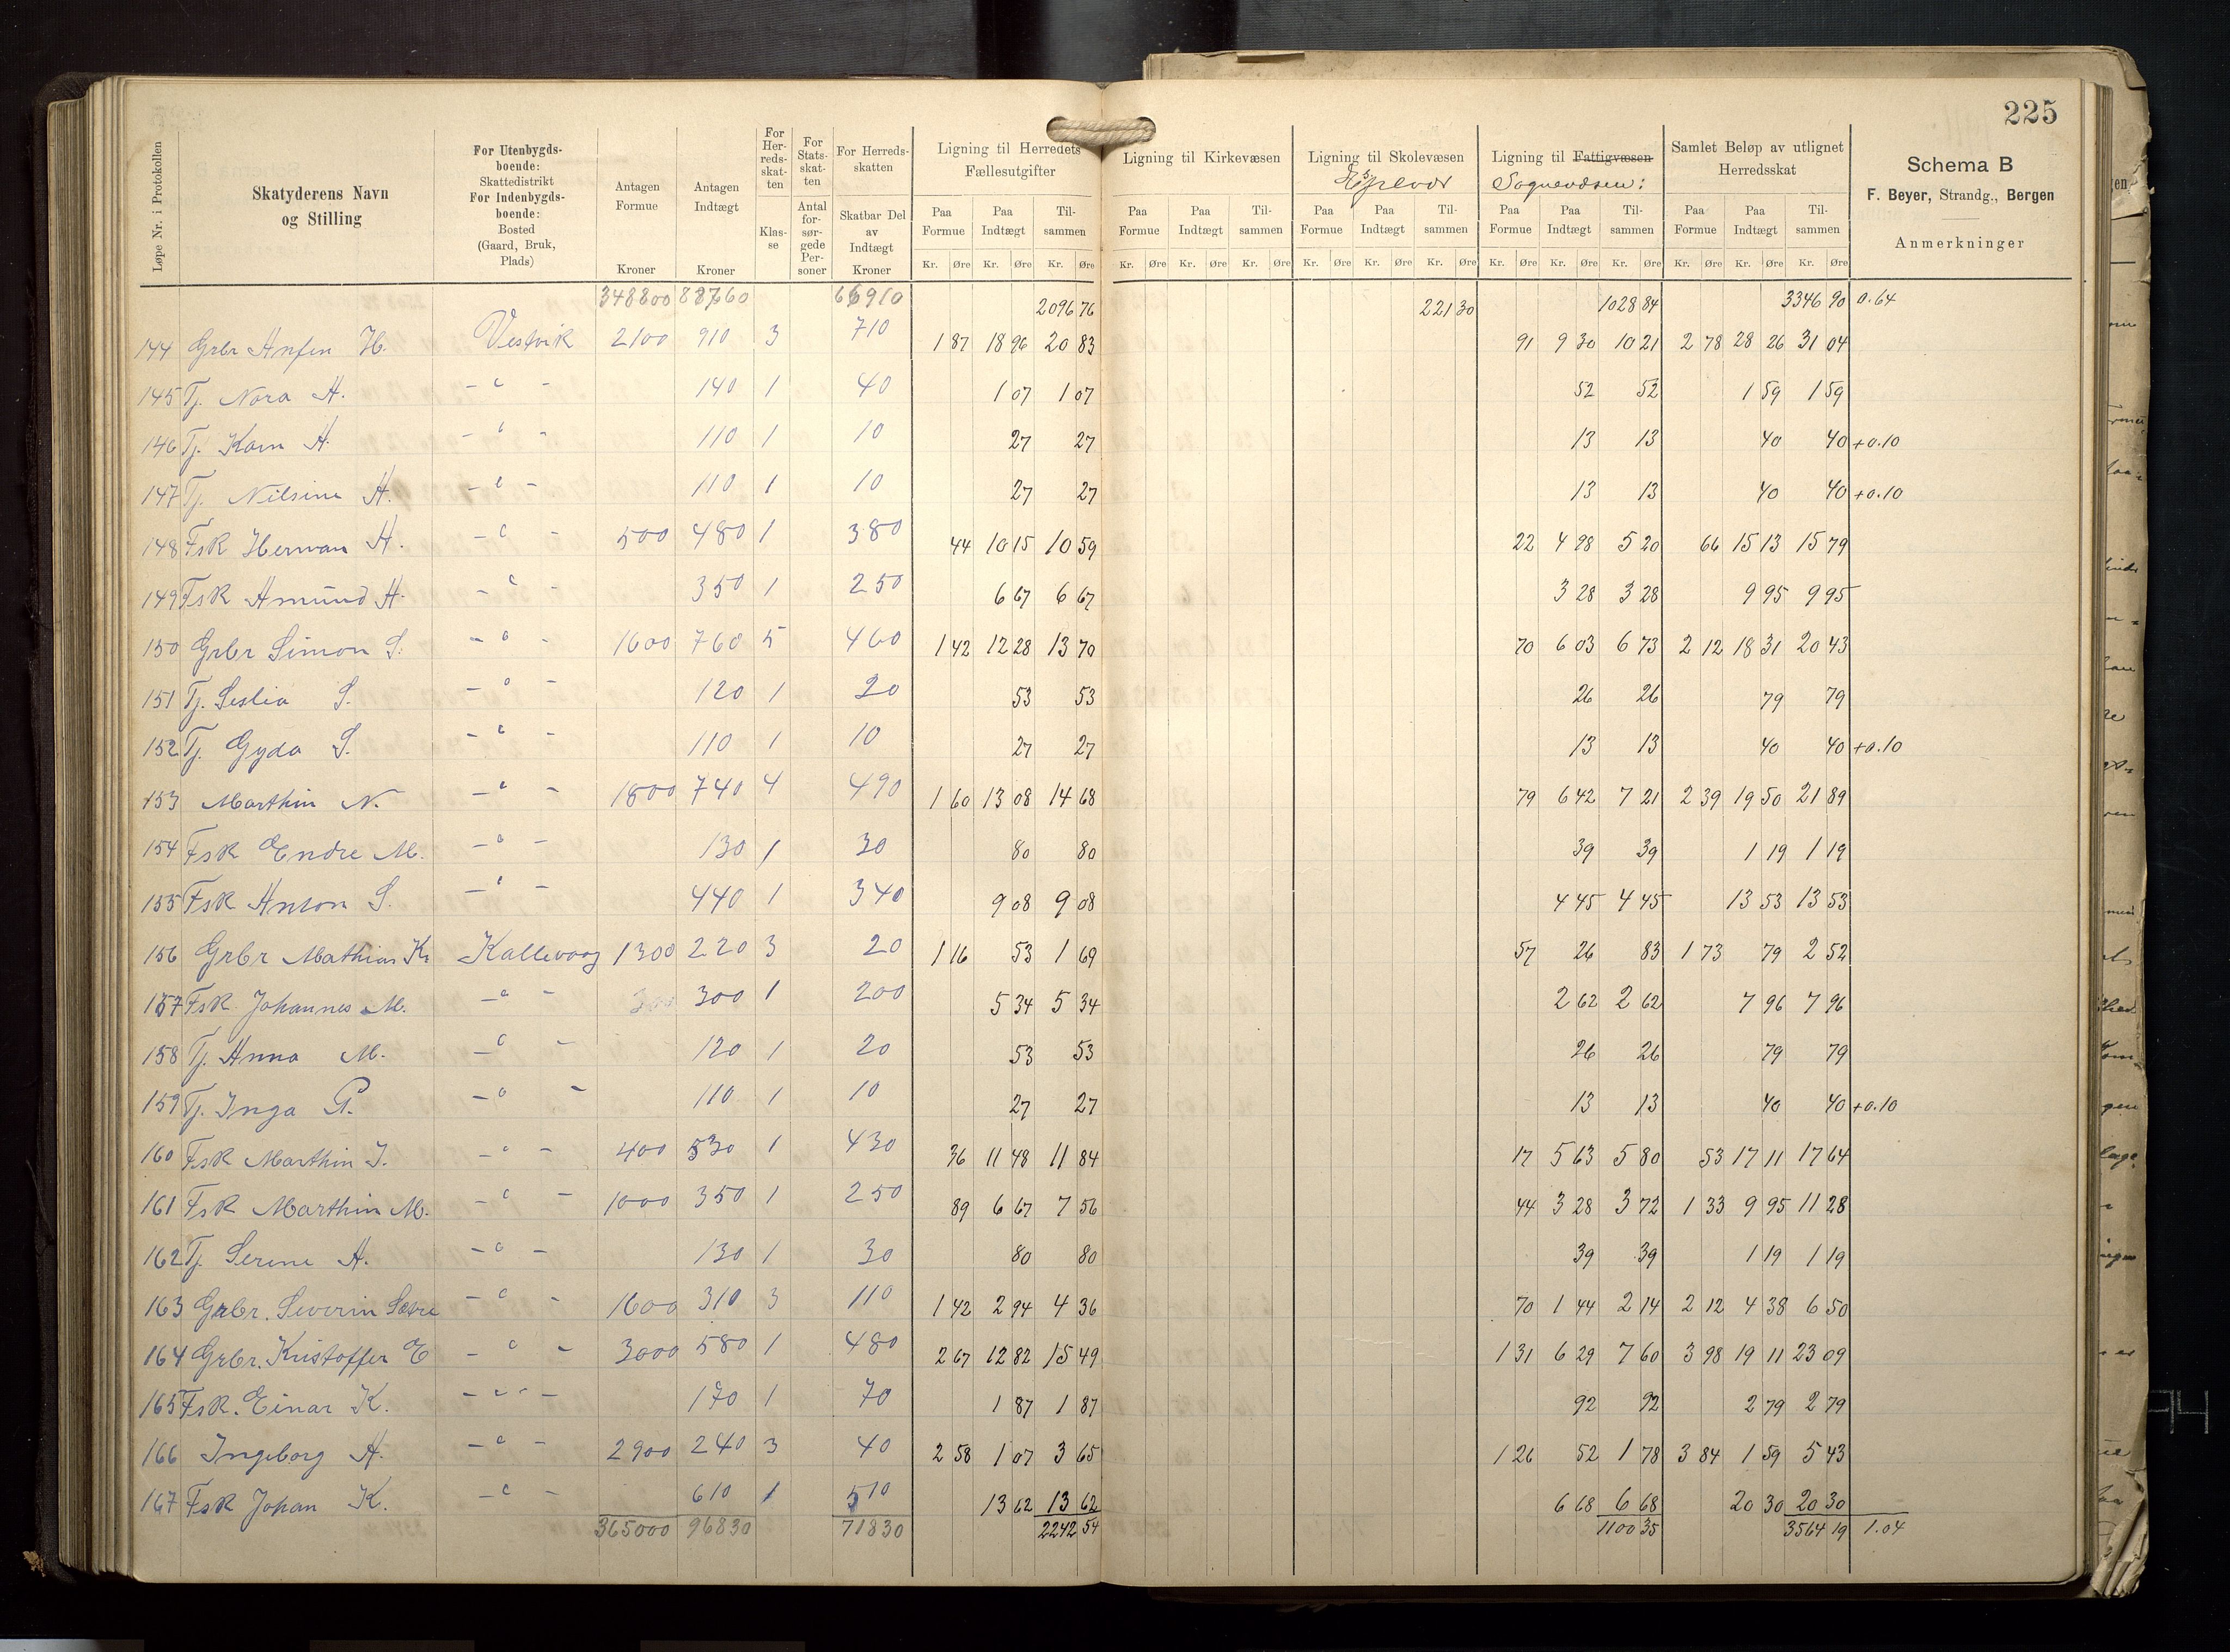 225
Løpe Nr. i Protokollen
Skatyderens Navn og Stilling
For Utenbygds-boende: Skattedistrikt For Indenbygds-boende: Bosted (Gaard, Bruk, Plads)
Antagen Formue Kroner
Antagen Indtægt Kroner
For Her-reds-skat-ten Klas-se
For Stats-skat-ten Antal for-sør-gede Per-soner
For Herreds-skatten Skatbar Del av Indtægt Kroner
Ligning til Herredets Fællesutgifter
Ligning til Kirkevæsen
Ligning til Skolevæsen
Ligning til Fattigvæsen Sognevæsen:
Samlet Beløp av utlignet Herredsskat
Schema B
F. Beyer, Strandg., Bergen
Anmerkninger
Paa Formue Paa Indtægt Til-sammen Paa Formue Paa Indtægt Til-sammen Paa Formue Paa Indtægt Til-sammen Paa Formue Paa Indtægt Til-sammen Paa Formue Paa Indtægt Til-sammen
Kr. Øre Kr. Øre Kr. Øre Kr. Øre Kr. Øre Kr. Øre Kr. Øre Kr. Øre Kr. Øre Kr. Øre Kr. Øre Kr. Øre Kr. Øre Kr. Øre Kr. Øre
348800 87760 66910 2096 76 221 30 1028 84 3346 90 0.64
144 Grbr Anfin H. Vestvik 2100 910 3 710 1 87 18 96 20 83 91 9 30 10 21 2 78 28 26 31 04
145 Tj. Nora A. - " - 140 1 40 1 07 1 07 52 52 1 59 1 59
146 Tj. Karn A. - " - 110 1 10 27 27 13 13 40 40 +0.10
147 Tj. Nilsine A. - " - 110 1 10 27 27 13 13 40 40 +0.10
148 Fsk Herman A. - " - 500 480 1 380 44 10 15 10 59 22 4 98 5 20 66 15 13 15 79
149 Fsk Amund A. - " - 350 1 250 6 67 6 67 3 28 3 28 9 95 9 95
150 Grbr Simon S. - " - 1600 760 5 460 1 42 12 28 13 70 70 6 03 6 73 2 12 18 31 20 43
151 Tj. Seslia S. - " - 120 1 20 53 53 26 26 79 79
152 Tj. Gyda S. - " - 110 1 10 27 27 13 13 40 40 +0.10
153 Marthin N. - " - 1800 740 4 490 1 60 13 08 14 68 79 6 42 7 21 2 39 19 50 21 89
154 Fsk Endre M. - " - 130 1 30 80 80 39 39 1 19 1 19
155 Fsk Anton S. - " - 440 1 340 9 08 9 08 4 45 4 45 13 53 13 53
156 Grbr Mathias K. Kallevaag 1300 220 3 20 1 16 53 1 69 57 26 83 1 73 79 2 52
157 Fsk Johannes M. - " - 300 1 200 5 34 5 34 2 62 2 62 7 96 7 96
158 Tj. Anna M. - " - 120 1 20 53 53 26 26 79 79
159 Tj. Inga P. - " - 110 1 10 27 27 13 13 40 40 +0.10
160 Fsk Marthin J. - " - 400 530 1 430 36 11 48 11 84 17 5 63 5 80 53 17 11 17 64
161 Fsk Marthin M. - " - 1000 350 1 250 89 6 67 7 56 44 3 28 3 72 1 33 9 95 11 28
162 Tj. Serine A. - " - 130 1 30 80 80 39 39 1 19 1 19
163 Grbr. Severin Sævre - " - 1600 310 3 110 1 42 2 94 4 36 70 1 44 2 14 2 12 4 38 6 50
164 Grbr. Kristoffer E - " - 3000 580 1 480 2 67 12 82 15 49 1 31 6 29 7 60 3 98 19 11 23 09
165 Fsk. Einar K. - " - 170 1 70 1 87 1 87 92 92 2 79 2 79
166 Ingeborg A. - " - 2900 240 3 40 2 58 1 07 3 65 1 26 52 1 78 3 84 1 59 5 43
167 Fsk Johan K. - " - 610 1 510 13 62 13 62 6 68 6 68 20 30 20 30
365000 96830 71830 2242 54 1100 35 3564 19 1.04